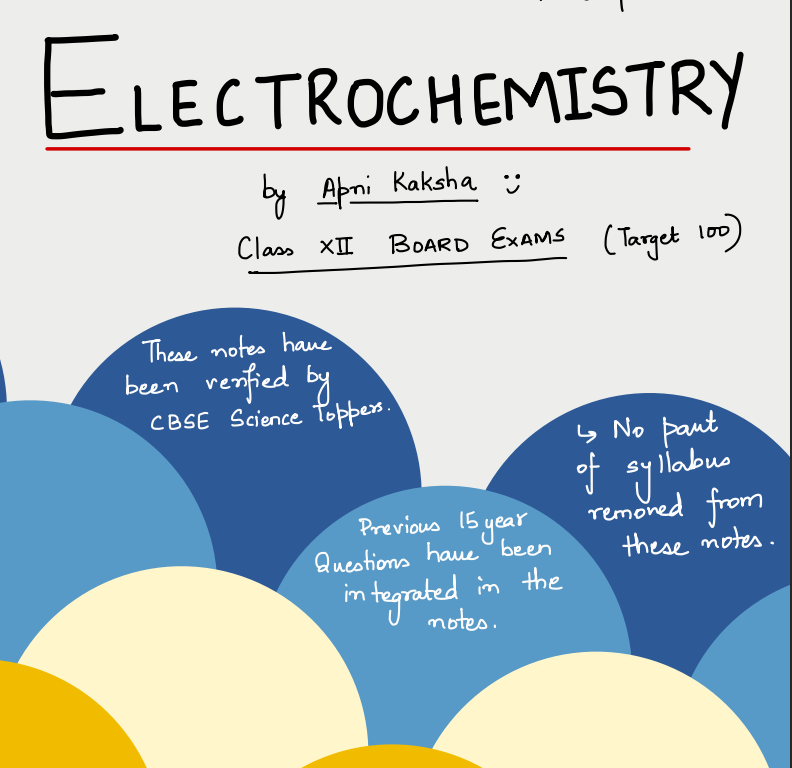 ELECTROCHEMISTRY
by Apni Kaksha
Class XII BOARD EXAMS (Target 100)
These notes have
been verified by
CBSE Science Toppers.
↳ No part
of syllabus
removed from
these notes.
Previous 15 year
Questions have been
integrated in the
notes.